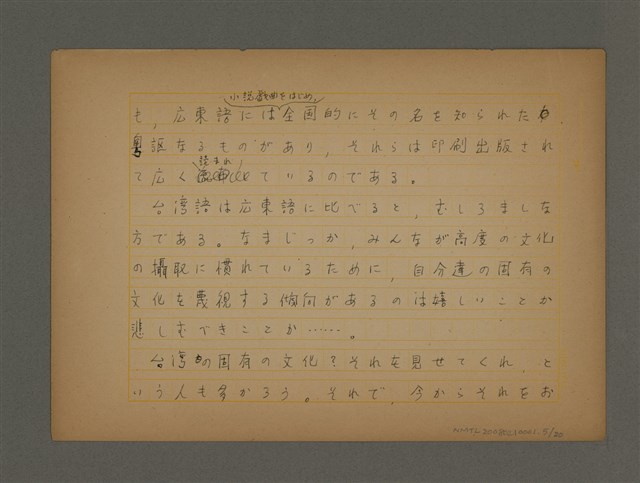 小説戯曲をはじめ、
も，広東語には全国的にその名を知られた
粤謳なるものがあり，それらは印刷出版され
読まれ，
て広く ているのである。
台湾語は広東語に比べると，むしろましな
方である。なまじっか，みんなが高度の文化
の摂取に慣れているために，自分達の固有の
文化を蔑視する傾向があるのは嬉しいことか
悲しむべきことか……。
台湾の固有の文化？それを見せてくれ，と
いう人も多かろう。それで，今からそれをお
5/20